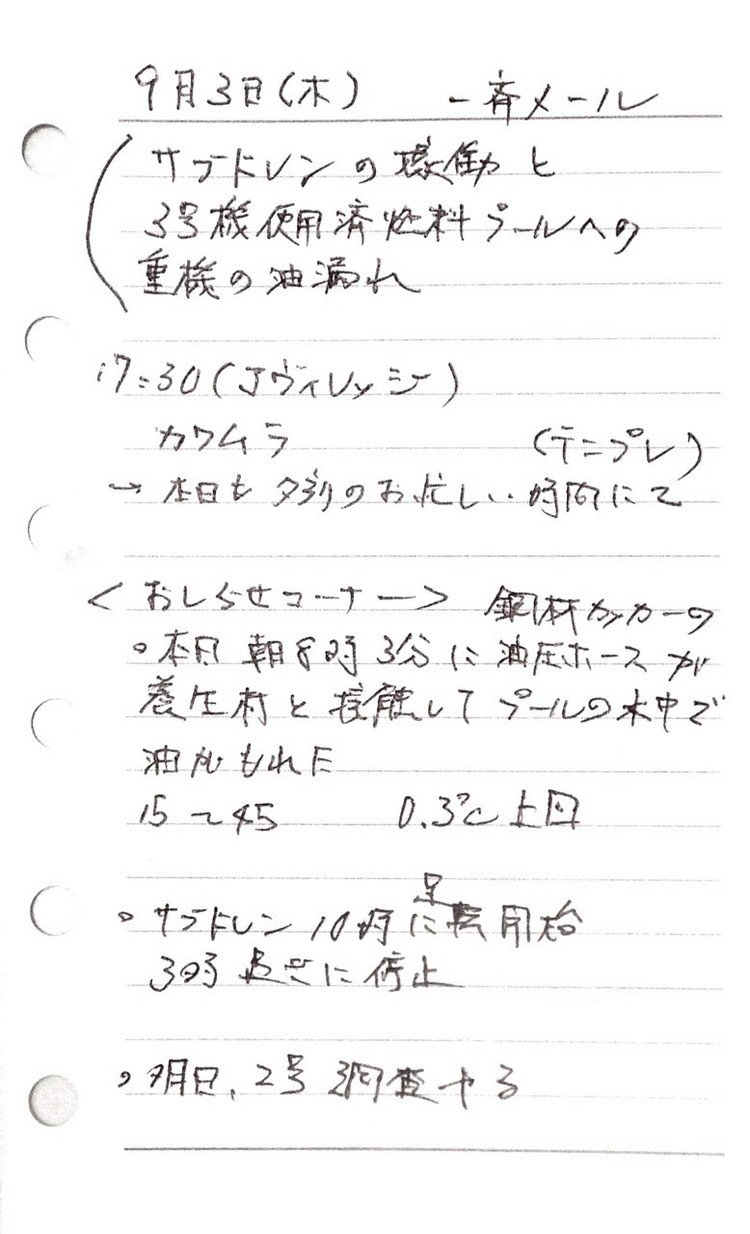 9月3日(木) 一斉メール
サブドレンの稼働と
3号機使用済燃料プールへの
重機の油漏れ
17:30(Jヴィレッジ)
カワムラ (テニプレ)
→本日も夕刻のお忙しい時間にて
<おしらせコーナー> 鋼材カッカーの
○本日 朝8時3分に油圧ホースが
養生材と接触してプールの水中で
油がもれた
15〜45 0.3℃上回
○サブドレン10時に転開始
3時過ぎに停止
○明日、2号調査やる